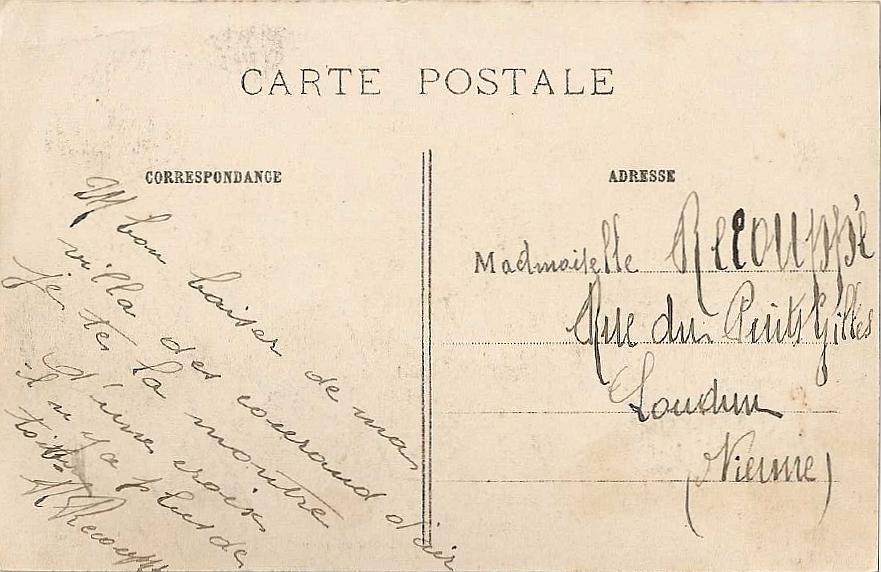 CARTE POSTALE
CORRESPONDANCE
ADRESSE
M bon baiser de ma
villa des courand d'air
je te la montre
d'une croix
il n y a plus de
toits
R Recoupp
Madmoiselle Recouppé
Rue du Puits Gilles
Loudun
(Vienne)